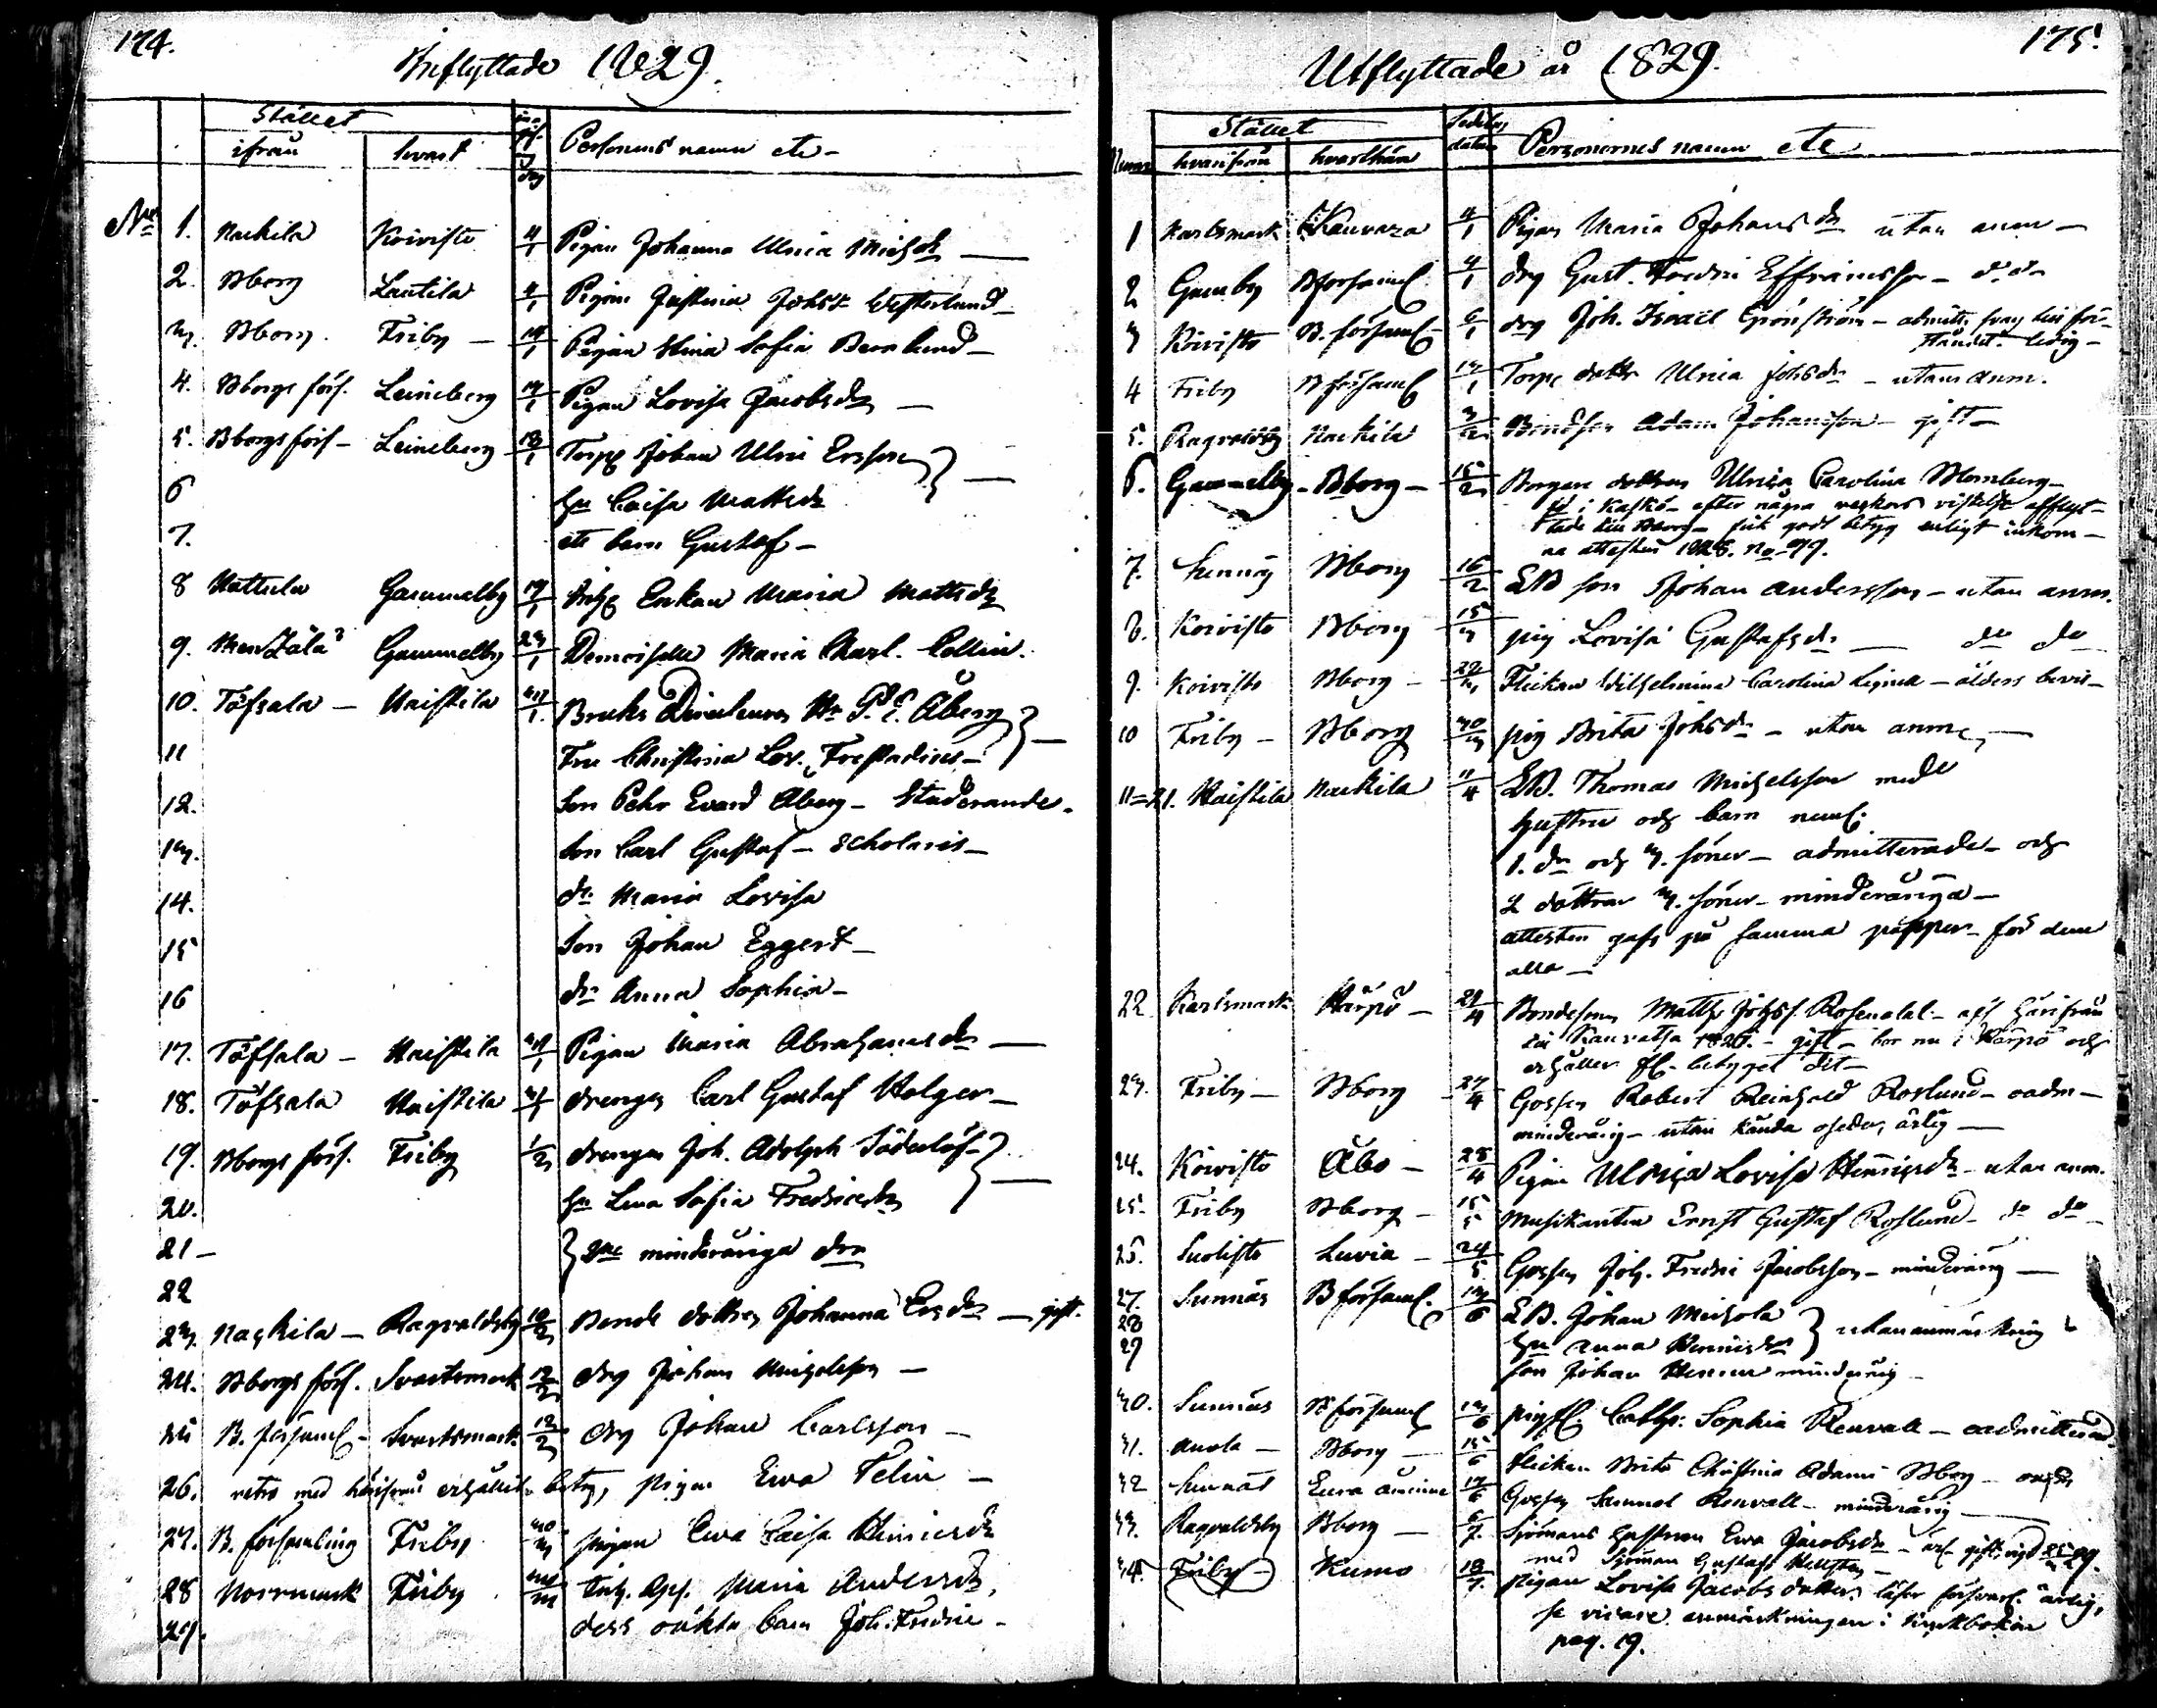 174.
Inflyttade 1829.
Stället
ifrån hvart dag Personens namn etc
No 1. Nackila Koivisto 4/1 Pigan Johanna Ulrica Michsdr
2. Bborg Lautila 4/1 Pigan Justina Johsdr Westerlund
3. Bborg Friby 14/1 Pigan Stina Sofia Berglund
4. Bborgs förs. Leineberg 17/1 Pigan Lovisa Jacobsdr
5. Bborgs förs. Leineberg 18/1 Torp Johan Ulric Ersson
6 hu Caisa Mattsdr
7. ett barn Gustaf
8 Hattula Gammelby 19/1 Enkan Maria Mattsdr
9. Gammelby 23/1 Demoiselle Maria Charl. Collin.
10. Töfsala Haistila Bruks Hr P. E. Åberg
11 Fru Christina Lov. Frestadius
12. Son Pehr Evard Åberg - Studerande
13. Son Carl Gustaf - Scholaris
14. dr Maria Lovisa
15 Son Johan Eggert
16 dr Anna Sophia
17. Töfsala Haistila Pigan Maria Abrahamsdr
18. Töfsala Haistila drengen Carl Gustaf Holger
19. Bborgs förs. Friby 1/2 drengen Joh. Adolph Söderlöf
20. hu Lena Sofia Fredricsdr
21 2ne minderåriga dr
22
23 Nackila Ragvaldsby 10/2 Bonde dottren Johanna Ersdr gift.
24. Bborgs förs. Svartsmark 12/2 drg Johan Michelsson
25 B. församl. Svartsmark 12/2 drg Johan Carlsson
26. retro med härifrån erhållit betyg, pigan Ewa Felin
27. B. församling Friby 30/3 pigan Ewa Caisa Henricsdr
28 Norrmark Friby Maria Andersdr,
29. dess oäkta barn Joh. Fredric
175.
Utflyttade år 1829.
Stället Sedelns
hvarifrån hvarthän datum Personernes namn etc
1 Karlsmark Kauvaza 4/1 Pigan Maria Johansdr utan anm
2 Gamby Bförsaml. 4/1 drg Gust. Fredric Effraimsson do do
3 Koivisto B. församl. 6/1 drg Joh. Israël Grönström - admitt. svag till för-
ståndet. ledig
4 Friby B församl 14/1 Torp dottr Ulrica Johsdr - utan anm.
5. Ragvaldsby Nackila 3/2 Bondson Adam Johansson gift
6. Gammelby Bborg 15/2 Borgare dottren Ulrica Carolina Blomberg
född i Kaskö - efter några veckors vistelse afflyt-
tade till Bborg - fick godt betyg enligt inkom-
na attesten 1828. No 99.
7. Sunnäs Bborg 16/2 LB son Johan Andersson - utan anm.
8. Koivisto Bborg 15/3 pig Lovisa Gustafsdr do do
9. Koivisto Bborg 22/3 Flickan Wilhelmina Carolina Lignell - ålders bevis
10 Friby Bborg 30/3 pig Brita Johsdr - utan anm.
11=21. Haistila Nackila 11/4 LB. Thomas Michelsson med
hustru och barn neml.
1. dr och 3. söner - admitterade och
2 döttrar 3. söner - minderåriga
attesten gafs på samma papper för dem
alla
22 Karlsmark Kärpö 24/4 Bondeson Matts Johss. Rosendal - afl härifrån
till Kauvatsa 1826. - gift - bor nu i Kärpö och
erhåller betyget dit
23. Friby Bborg 27/4 Gossen Robert Reinhold Roslund - oadm
minderårig - utan kända oseder, ärlig
24. Koivisto Åbo 28/4 Pigan Ulrica Lovisa Henricsdr - utan anm.
25. Friby Bborg 15/5 Musikanten Ernst Gustaf Roslund do do
26. Suolisto Luvia 24/5 Gossen Joh. Fredric Jacobsson - minderårig
27. Sunnäs B församl. 13/6 LB. Johan Michola
28 hu Anna Henricsdr utan anmärkning
29 son Johan Henric minderårig
30. Sunnäs B församl 13/6 Cathr. Sophia Renvall - oadmitterad.
31. Anola Bborg 15/6 Flickan Brita Christina Adami Bborg
32 Sunnäs Eura åminne 17/6 Gossen Samuel Renvall minderårig
33. Ragvaldsby Bborg 6/7. Sjömans hustrun Ewa Jacobsdr
med Sjöman Gustaf Hellsten
34. Friby Kumo 18/7. pigan Lovisa Jacobs dotter, läser försvarl. ärlig,
se vidare anmärkningen i kyrkboken
pag. 19.